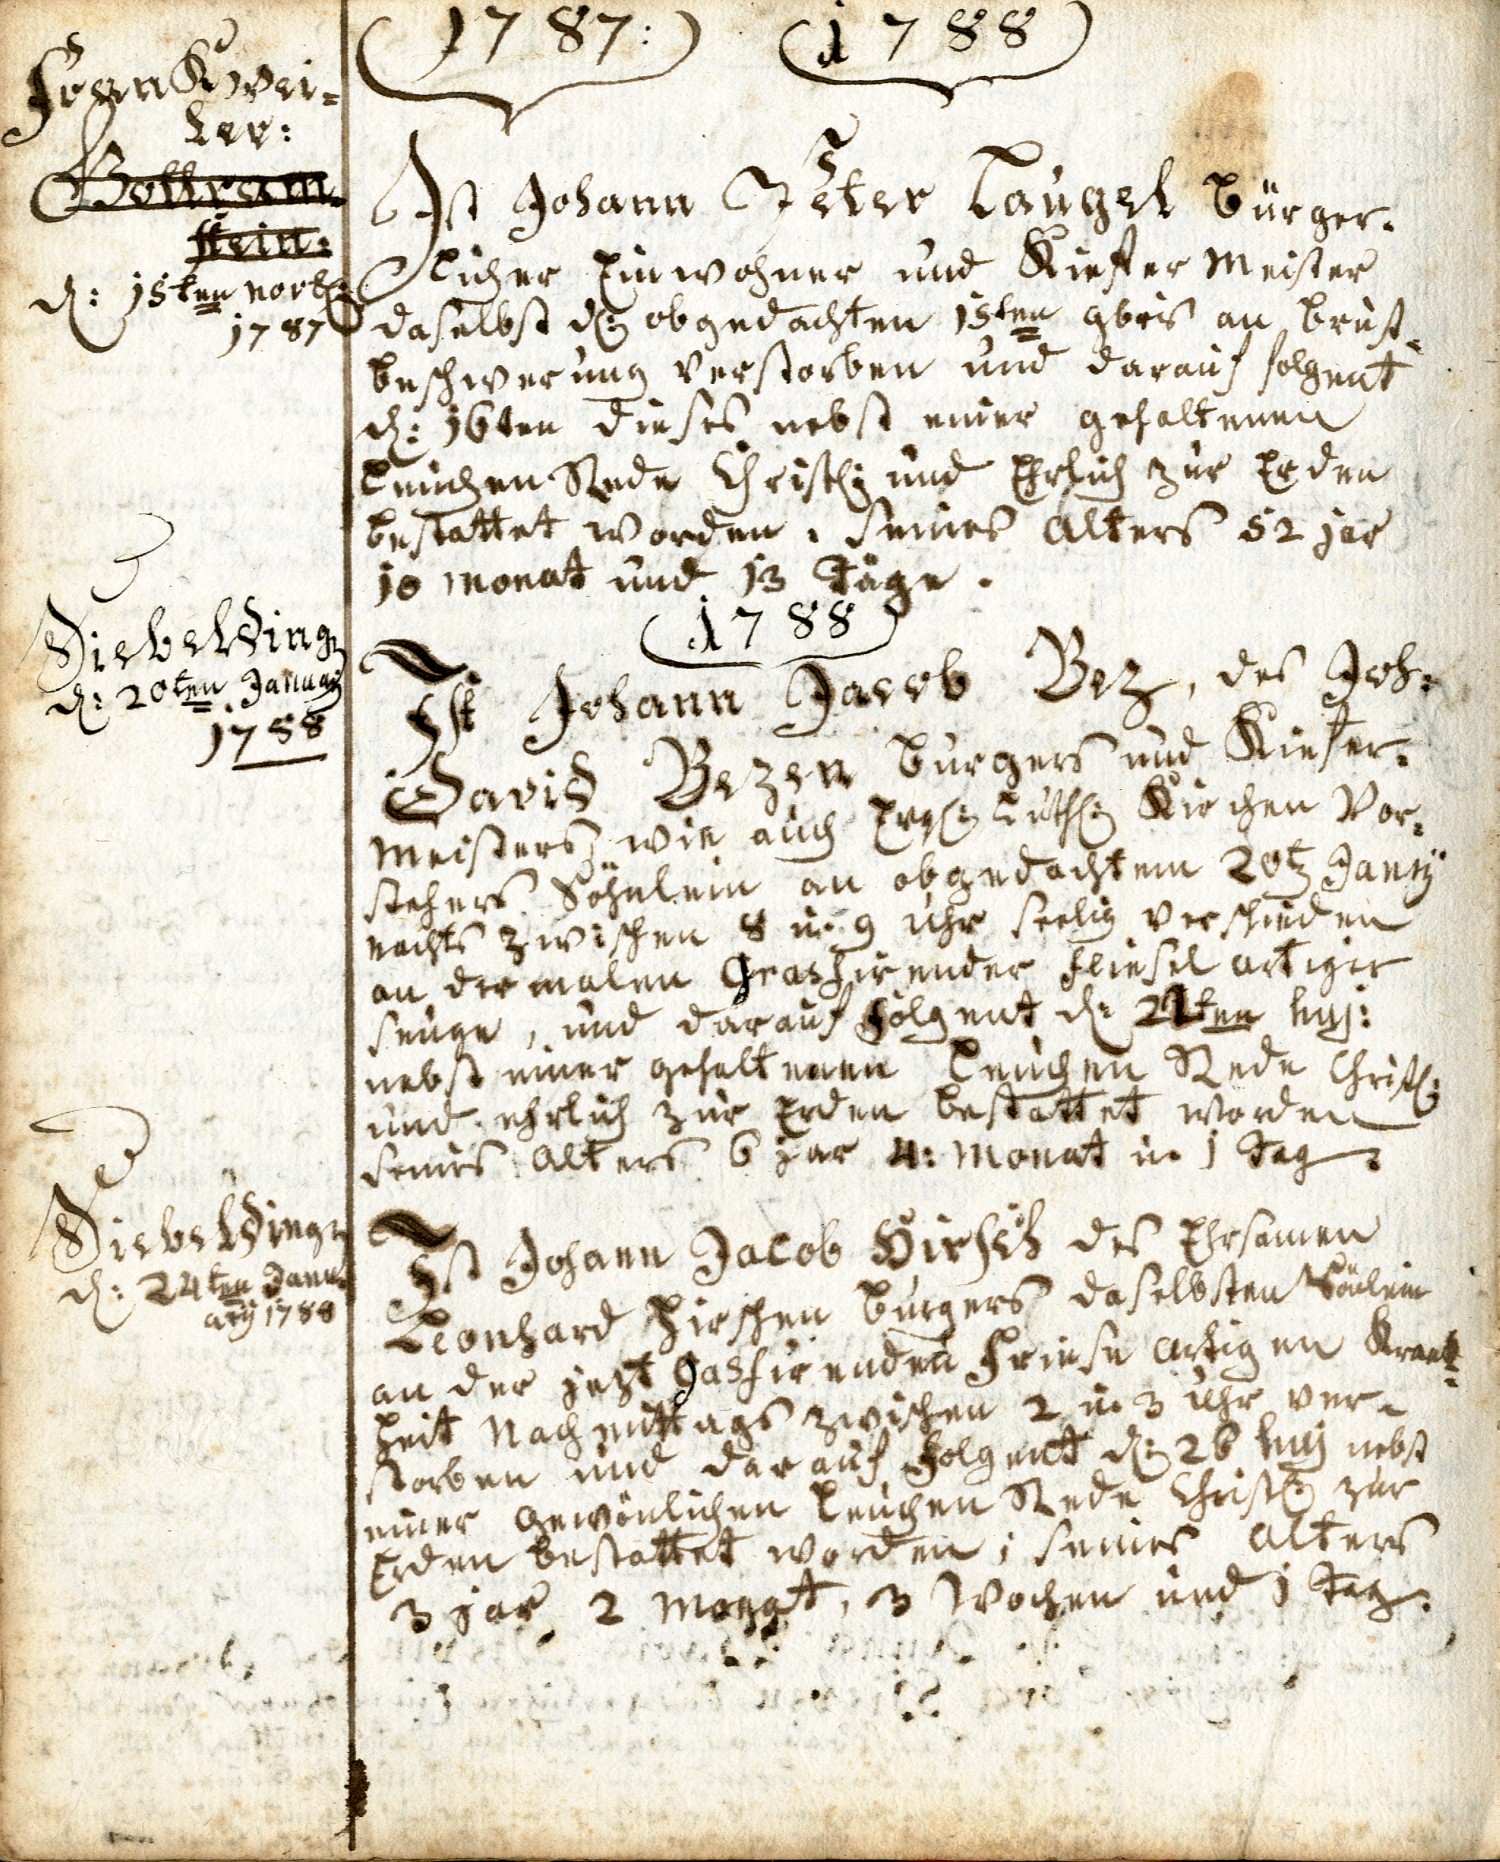 (1787:) (1788)
Frankwei=
ler:
Gottram=
stein:
d: 15ten novb:
1787
Ist Johann Peter Laugel Bürger=
licher Einwohner und Kiefer Meister
daselbst d: obgedachten 15ten 9bris an Brust=
beschwerung verstorben und darauf folgent
d: 16ten dieses nebst einer gehaltenen
Leichen Rede Christl: und Ehrlich zur Erden
bestattet worden, seines Alters 52 jar
10 Monat und 13 Täge.
(1788)
Siebelding
d: 20ten January
1788
Ist Johann Jacob Bez, des Joh:
David Bezen Burgers und Kiefer=
Meisters wie auch Evgl: Luthl: Kirchen Vor=
stehers Söhnlein an obgedachtem 20t Janry
nachts zwischen 8 u. 9 Uhr seelig verschieden
an der malen grashirender fliesel artiger
seuge, und darauf folgent d: 22ten huj:
nebst einer gehaltenen Leichen Rede Christl:
und ehrlich zur Erden bestattet worden
seines Alters 6 jar 4: Monat u. 1 Tag.
Siebelding
d: 24ten Janu=
ary 1788
Ist Johann Jacob Hirsch des Ehrsamen
Leonhard Hirschen Burgers daselbsten Sönlein
an der jezt gashirenden Friese artigen Krank=
heit Nachmittags zwischen 2 u. 3 Uhr ver=
storben und darauf folgent d: 26 huj nebst
einer gewönlichen Leichen Rede Christl: zur
Erden bestattet worden; seines Alters
3 jar 2 Monat, 3 Wochen und 1 Tag.